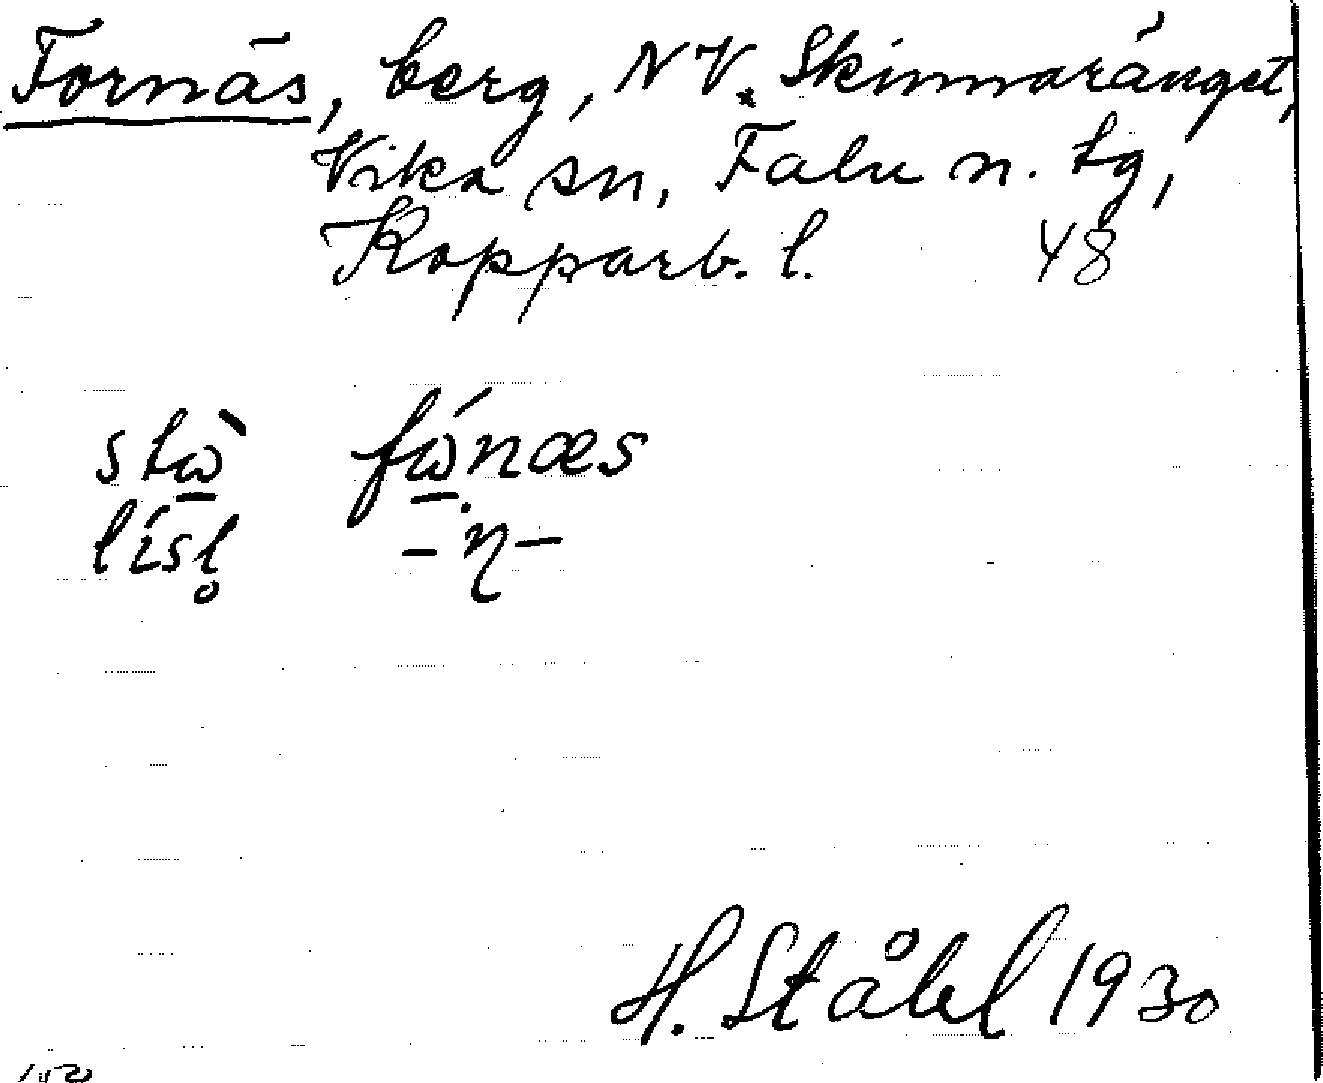 Fornäs, berg, NV. Skinnaränget,
Vika sn, Falu n. tg,
Kopparb. l. 48
stὼ̱ fώ̱.næs
lísl̥ -η-
H. Ståhl 1930